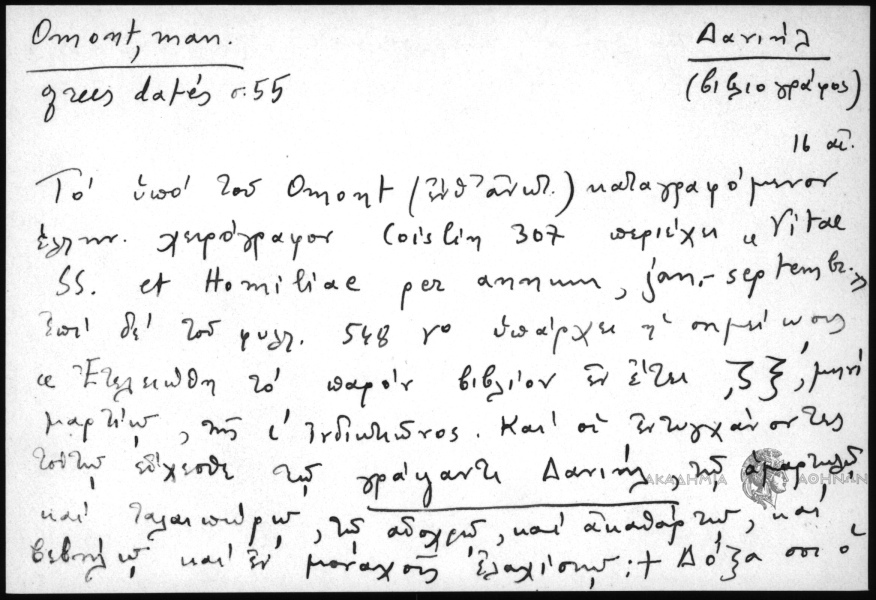 Omont, man.
grecs datés σ. 55
Δανιήλ
(βιβλιογράφος)
16 αἰ.
Τό ὑπό τοῦ Omont (ἔνθ' ἀνωτ.) καταγραφόμενον
ἑλλην. χειρόγραφον Coislin 307 περιέχει « Vitae
SS. et Homiliae per annum, jan.- septembr. »
Ἐπί δέ τοῦ φυλλ. 548 vº ὑπάρχει ἡ σημείωσις
« Ἐτελειώθη τό παρόν βιβλίον ἐν ἔτει ͵ζξ΄, μηνί
μαρτίῳ, τῆς ι΄ ἰνδικτιῶνος. Καί οἱ ἐντυγχάνοντες
τούτῳ εὔχεσθε τῷ γράψαντι Δανιήλ, τῷ ἁμαρτωλῷ
ΑΚΑΔΗΜΙΑ ΑΘΗΝΩΝ
καί ταλαιπώρῳ, τῷ ἀδοχρῷ, καί ἀκαθάρτῳ, καί
βεβήλῳ καί ἐν μοναχοῖς ἐλαχίστῳ :+ Δόξα σοι ὁ